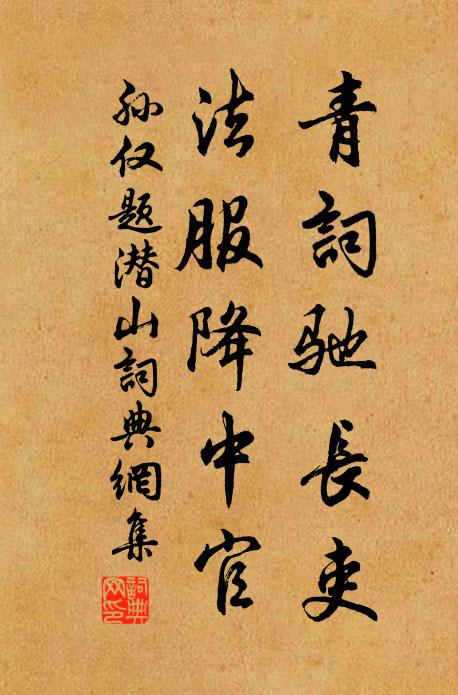 青詞馳長吏
法服降中官
孙仅题潜山詞典網集
詞典网印